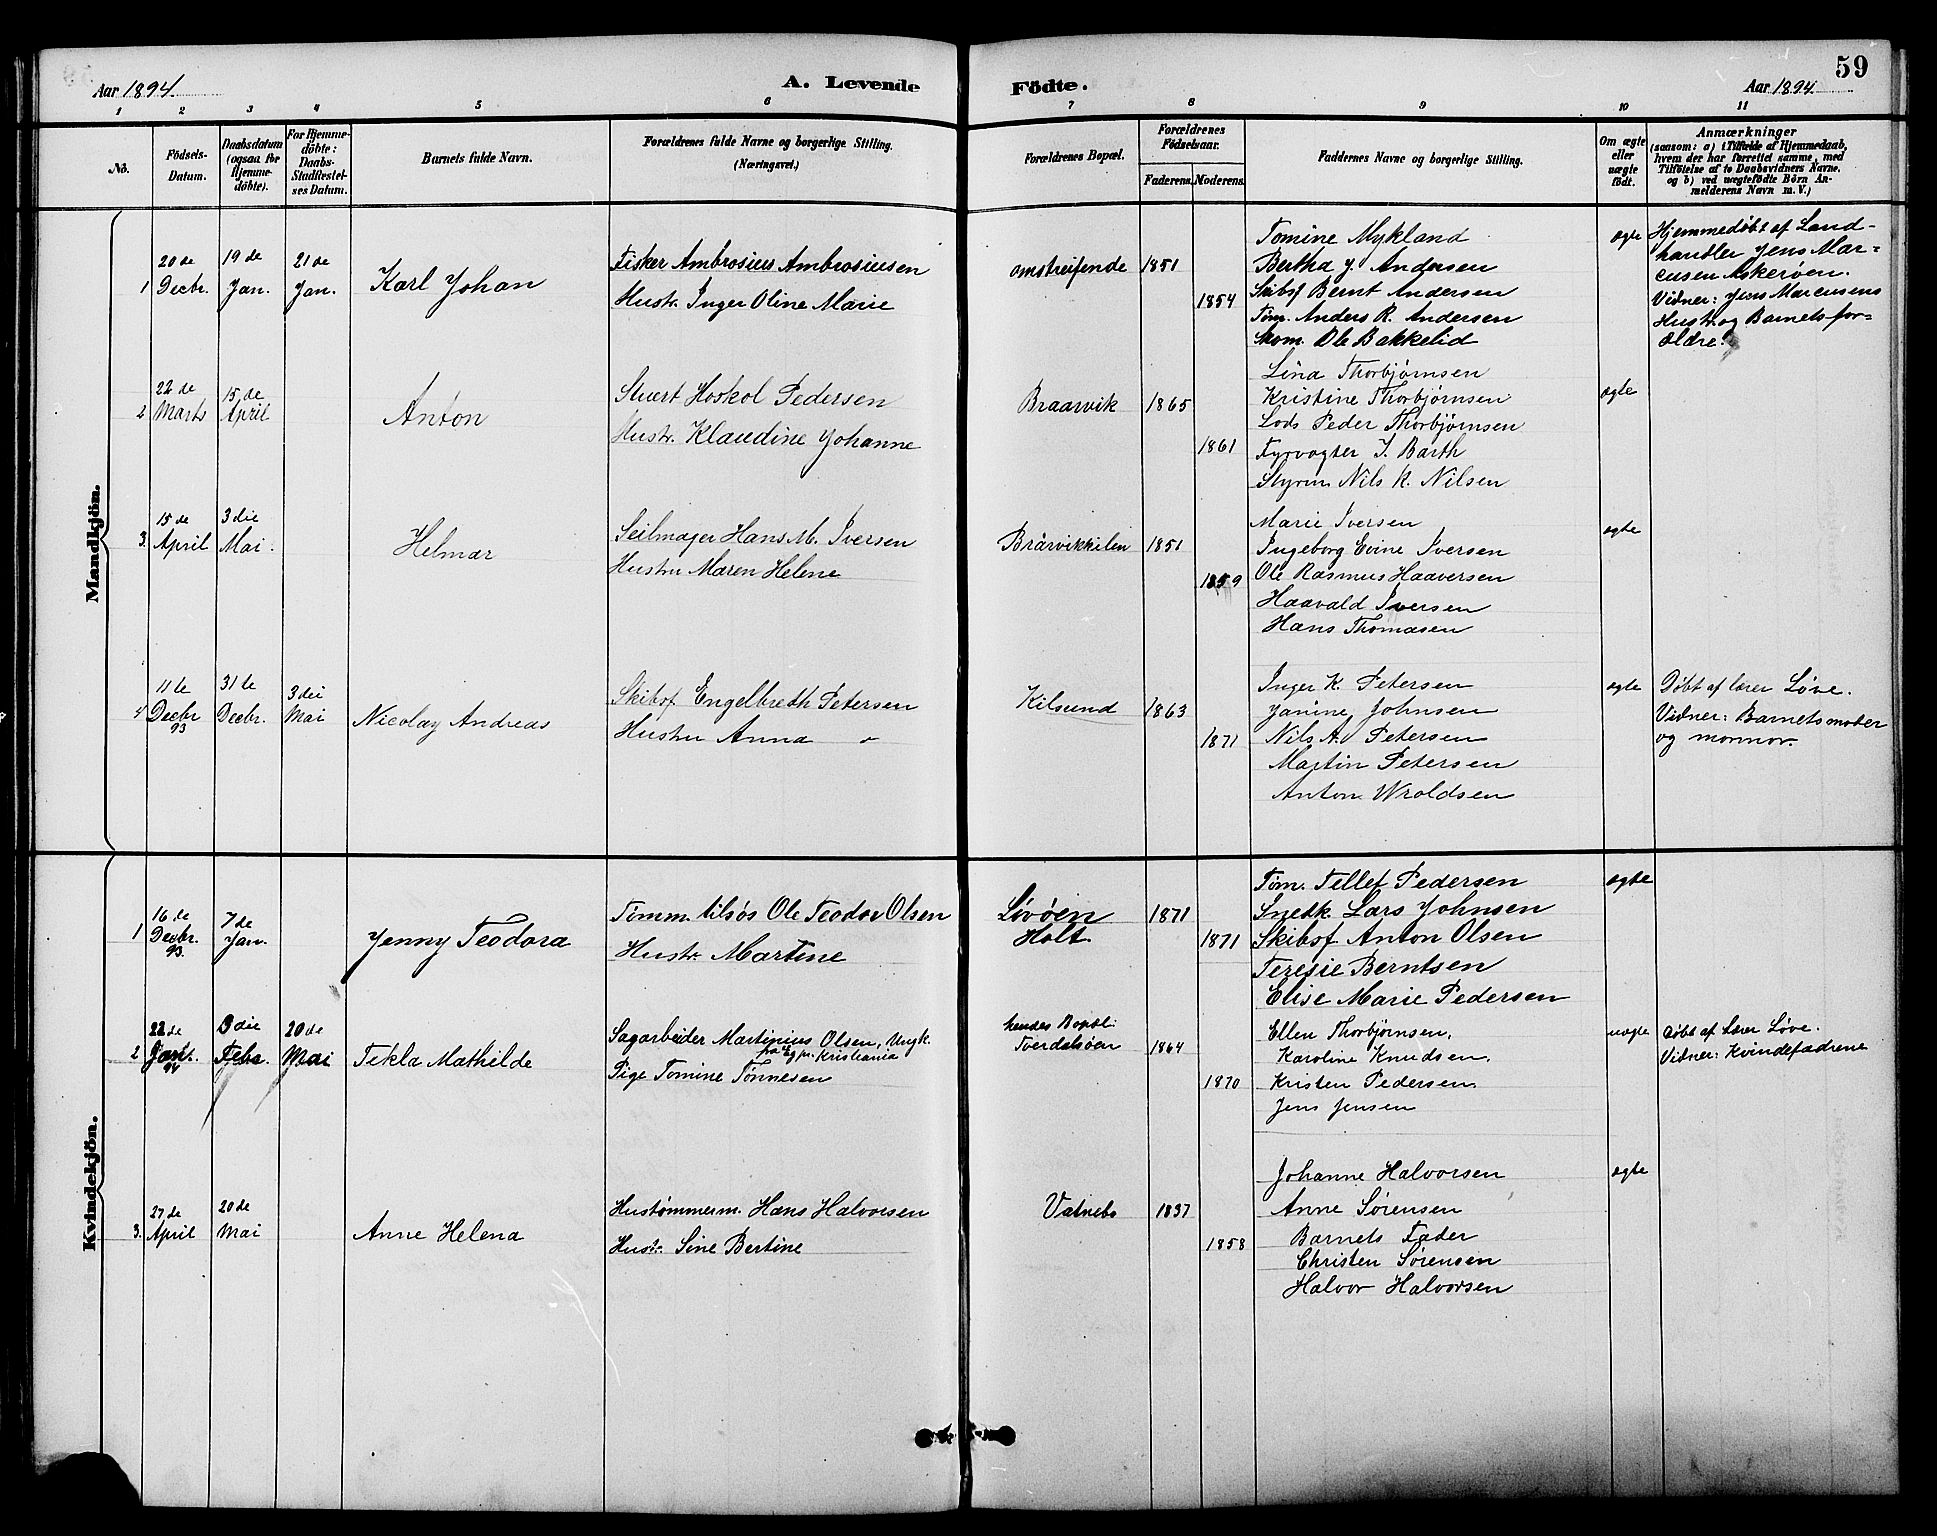 59
Aar 1894. A. Levende Födte. Aar 1894.
1 2 3 4 5 6 7 8 9 10 11
No.
Födsels-Datum.
Daabsdatum (ogsaa for Hjemmedöbte).
For Hjemmedöbte: Daabs-Stadfæstelses Datum.
Barnets fulde Navn.
Forældrenes fulde Navne og borgerlige Stilling.
(Næringsvei.)
Forældrenes Bopæl.
Forældrenes Födselsaar.
Faderens. Moderens.
Faddernes Navne og borgerlige Stilling.
Om ægte eller uægte födt.
Anmærkninger
(saasom: a) i Tilfælde af Hjemmedaab,
hvem der har forrettet samme, med
Tilföielse af to Daabsvidners Navne,
og b) ved uægtefödte Börn An-
melderens Navn m. V.)
Mandkjön.
1 20de Decbr. 19de Jan. 21de Jan. Karl Johan
Fisker Ambrosius Ambrosiusen
Hustr. Inger Oline Marie
omstreifende 1851 1854
Tomine Mykland
Bertha J. Andersen
Skibsf Bernt Andersen
Tøm. Anders R. Andersen
Skom. Ole Bakkelid
ægte
Hjemmedøbt af Land-
handler Jens Mar-
cusen Askerøen.
Vidner: Jens Marcusens
Hustr. og Barnets for-
ældre.
2 22de Marts 15de April Anton
Stuert Hoskol Pedersen
Hustr. Klaudine Johanne
Braarvik 1865 1861
Lina Thorbjørnsen
Kristine Thorbjørnsen
Lods Peder Thorbjørnsen
Fyrvogter J. Barth
Styrm. Nils K. Nilsen
ægte
3. 15de April 3die Mai. Helmar
Seilmager Hans M. Iversen
Hustru Maren Helene
Brårvikkilen 1851 1859
Marie Iversen
Ingeborg Evine Iversen
Ole Rasmus Haaversen
Haavald Iversen
Hans Thomasen
ægte
4 11te Decbr 93 31te Decbr. 3die Mai Nicolay Andreas
Skibsf Engelbreth Petersen
Hustru Anna
Kilsund 1863 1871
Inger K. Petersen
Janine Johnsen
Nils A. Petersen
Martin Petersen
Anton Wroldsen
ægte
Døbt af lærer Løve.
Vidner: Barnets moder
og mormor.
Kvindekjön.
1 16de Decbr. 93. 7de Jan. Jenny Teodora
Tømm. tilsøs Ole Teodor Olsen
Hustr. Martine
Løvøen
Holt. 1871 1871
Tøm. Tellef Pedersen
Snedk. Lars Johnsen
Skibsf Anton Olsen
Teresie Berntsen
Elise Marie Pedersen
ægte
2 22de Jan. 94 3die Feb. 20de Mai Tekla Mathilde
Sagarbeider Martinius Olsen, Ungk.
Kristiania
Pige Tomine Tønnesen
hendes Bopæl:
Tverdalsøen 1864 1870
Ellen Thorbjørnsen.
Karoline Knudsen.
Kristen Pedersen
Jens Jensen
uægte
Døbt af Lærer Løve.
Vidner: Kvindefadrene
3. 27de April 20de Mai Anne Helena
Hustømmerm. Hans Halvorsen
Hustr. Sine Bertine
Vatnebo 1837 1858
Johanne Halvorsen
Anne Sørensen
Barnets Fader
Christen Sørensen
Halvor Halvorsen
ægte